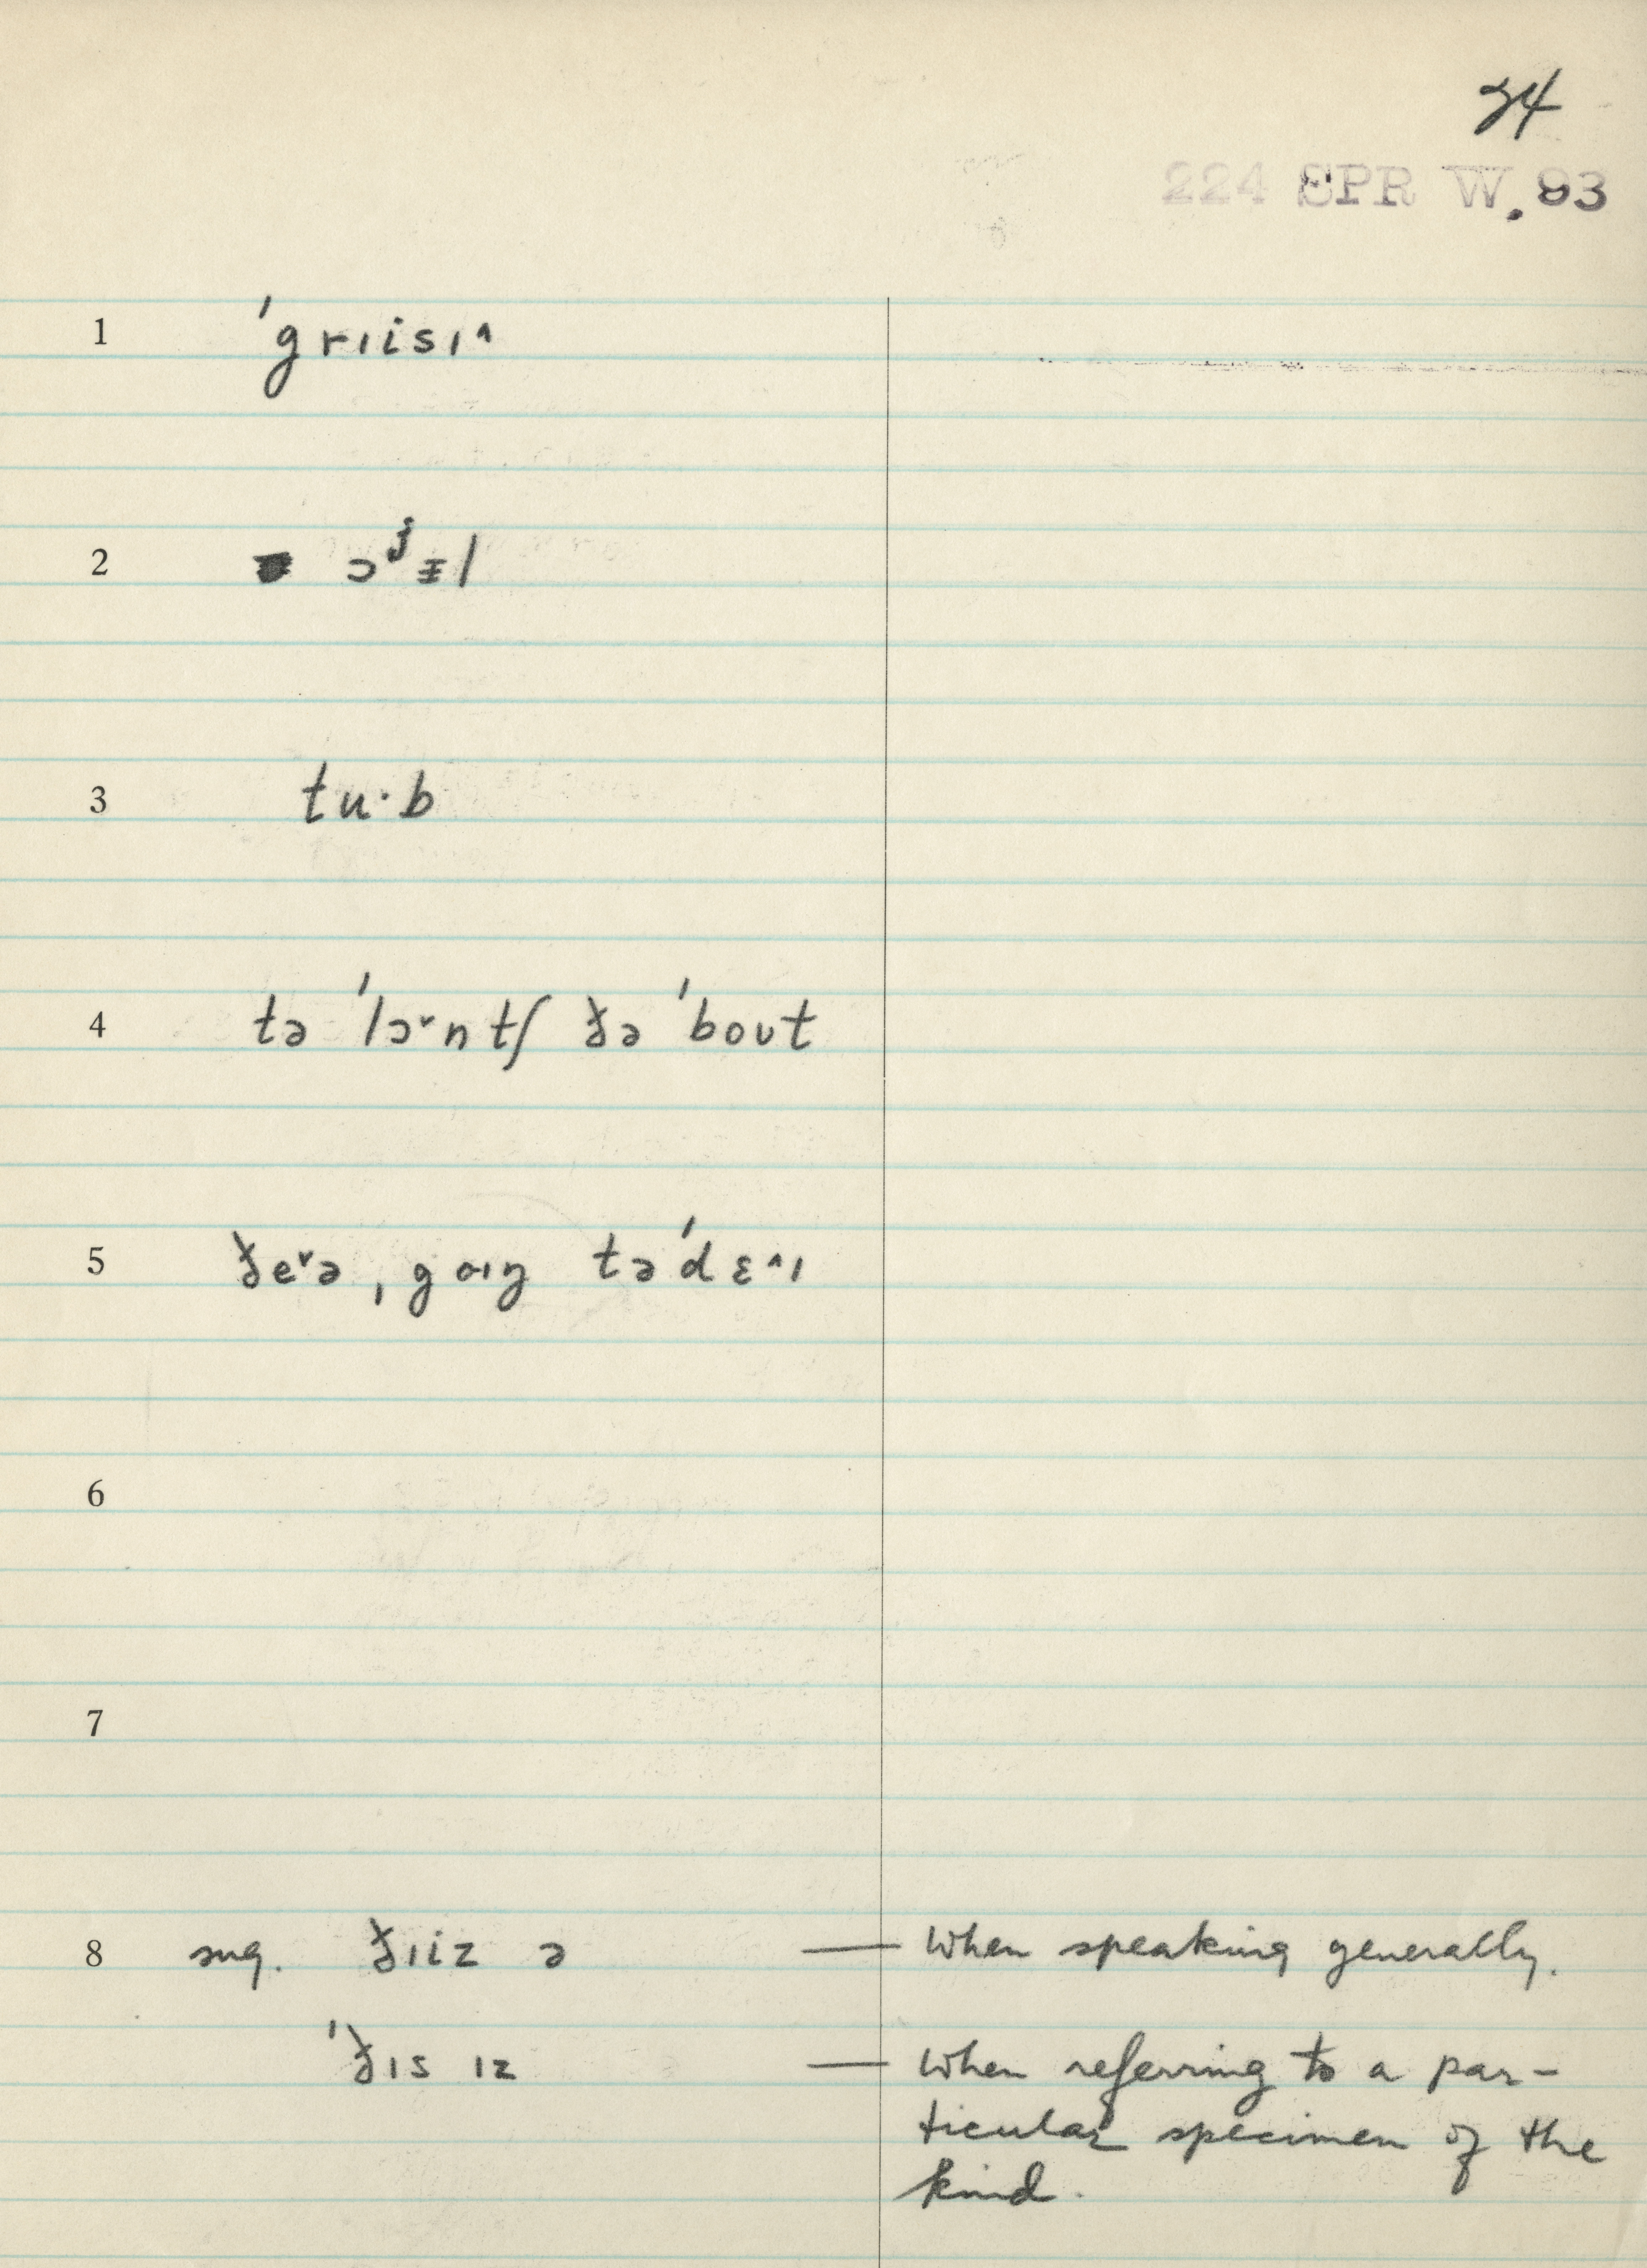 24
224 SPR W. 93
1 ˈgrɪisɪ^
2 ɔʲᵻl
3 tu·b
4 tə ˈlɔ˅ntʃ ðə ˈboʊt
5 ðe˅ə ˌgoɪŋ təˈdɛ^ɪ
6
7
8 sug. ðɪiz ə — When speaking generally.
ˈðɪs ɪz — When referring to a par-
ticular specimen of the
kind.